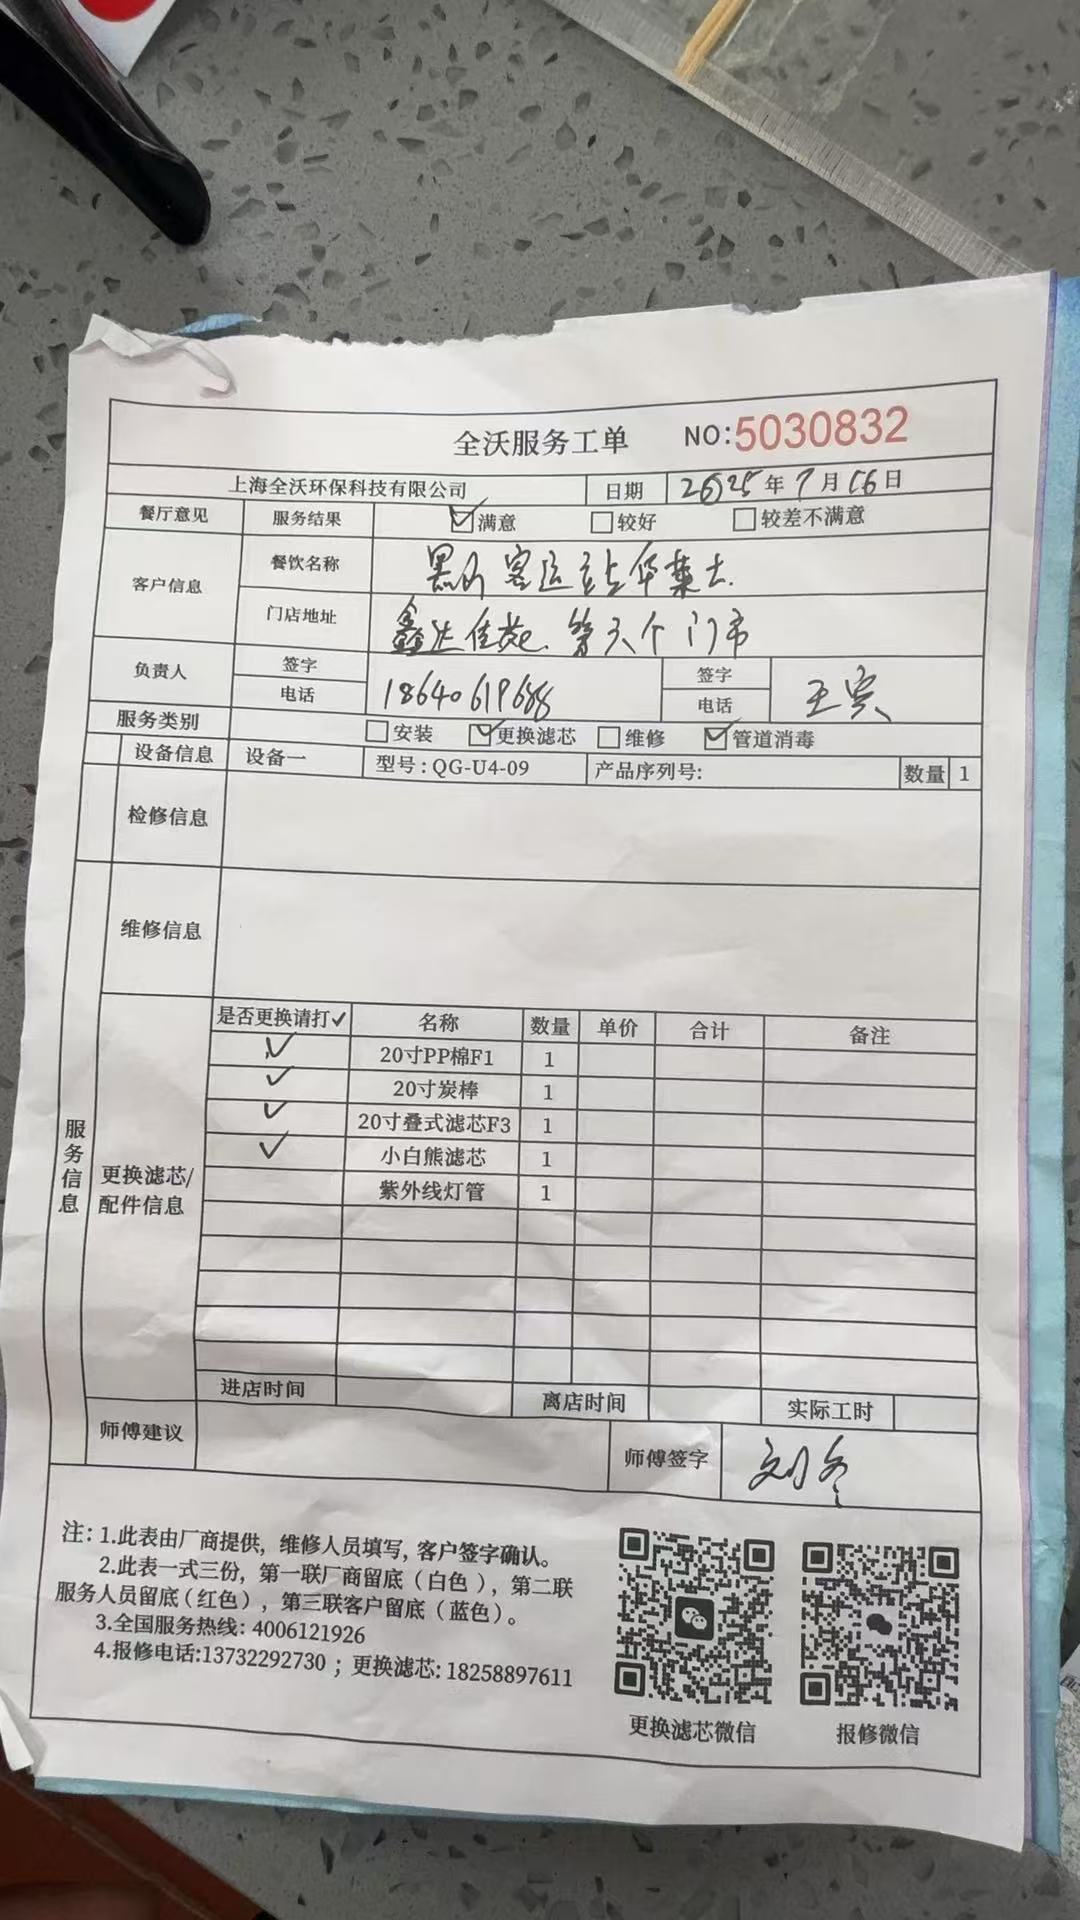 全沃服务工单 NO:5030832
上海全沃环保科技有限公司 日期 2025年7月16日
餐厅意见 服务结果 ☑满意 ☐较好 ☐较差不满意
客户信息 餐饮名称 黑山客运站华莱士.
门店地址 鑫达佳苑.第六个门市
负责人 签字 签字
电话 18640619688 电话 王宾
服务类别 ☐安装 ☑更换滤芯 ☐维修 ☑管道消毒
设备信息 设备一 型号:QG-U4-09 产品序列号: 数量 1
检修信息
维修信息
服务信息
更换滤芯/配件信息
是否更换请打✓ 名称 数量 单价 合计 备注
✓ 20寸PP棉F1 1
✓ 20寸炭棒 1
✓ 20寸叠式滤芯F3 1
✓ 小白熊滤芯 1
紫外线灯管 1
进店时间 离店时间 实际工时
师傅建议 师傅签字 刘冬
注:1.此表由厂商提供,维修人员填写,客户签字确认。
2.此表一式三份,第一联厂商留底(白色),第二联
服务人员留底(红色),第三联客户留底(蓝色)。
3.全国服务热线:4006121926
4.报修电话:13732292730;更换滤芯:18258897611
更换滤芯微信 报修微信